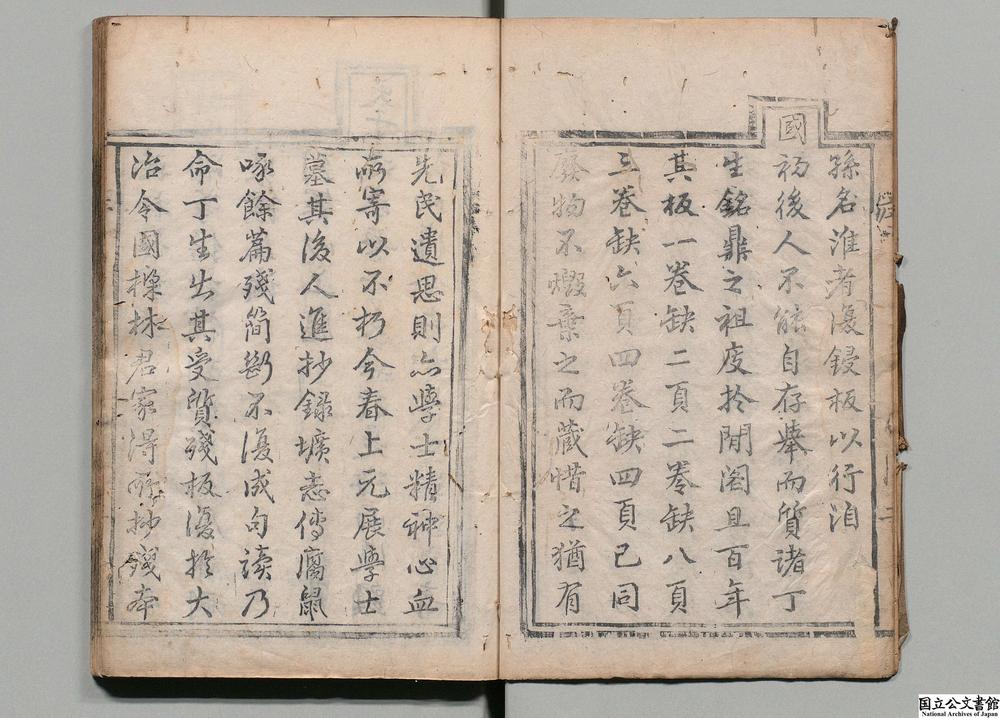 孫名淮者復鋟板以行洎
國初後人不能自存舉而質諸丁
生銘鼎之祖庋於閒閣且百年
其板一卷缺二頁二卷缺八頁
三卷缺六頁四卷缺四頁已同
廢物不燬棄之而藏惜之猶有
先民遺思則亦學士精神心血
所寄以不朽今春上元展學士
墓其後人進抄錄壙志傳腐鼠
啄餘篇殘簡斷不復成句讀乃
命丁生出其受質殘板復於大
冶令國樑林君家得所抄本
国立公文書館
National Archives of Japan